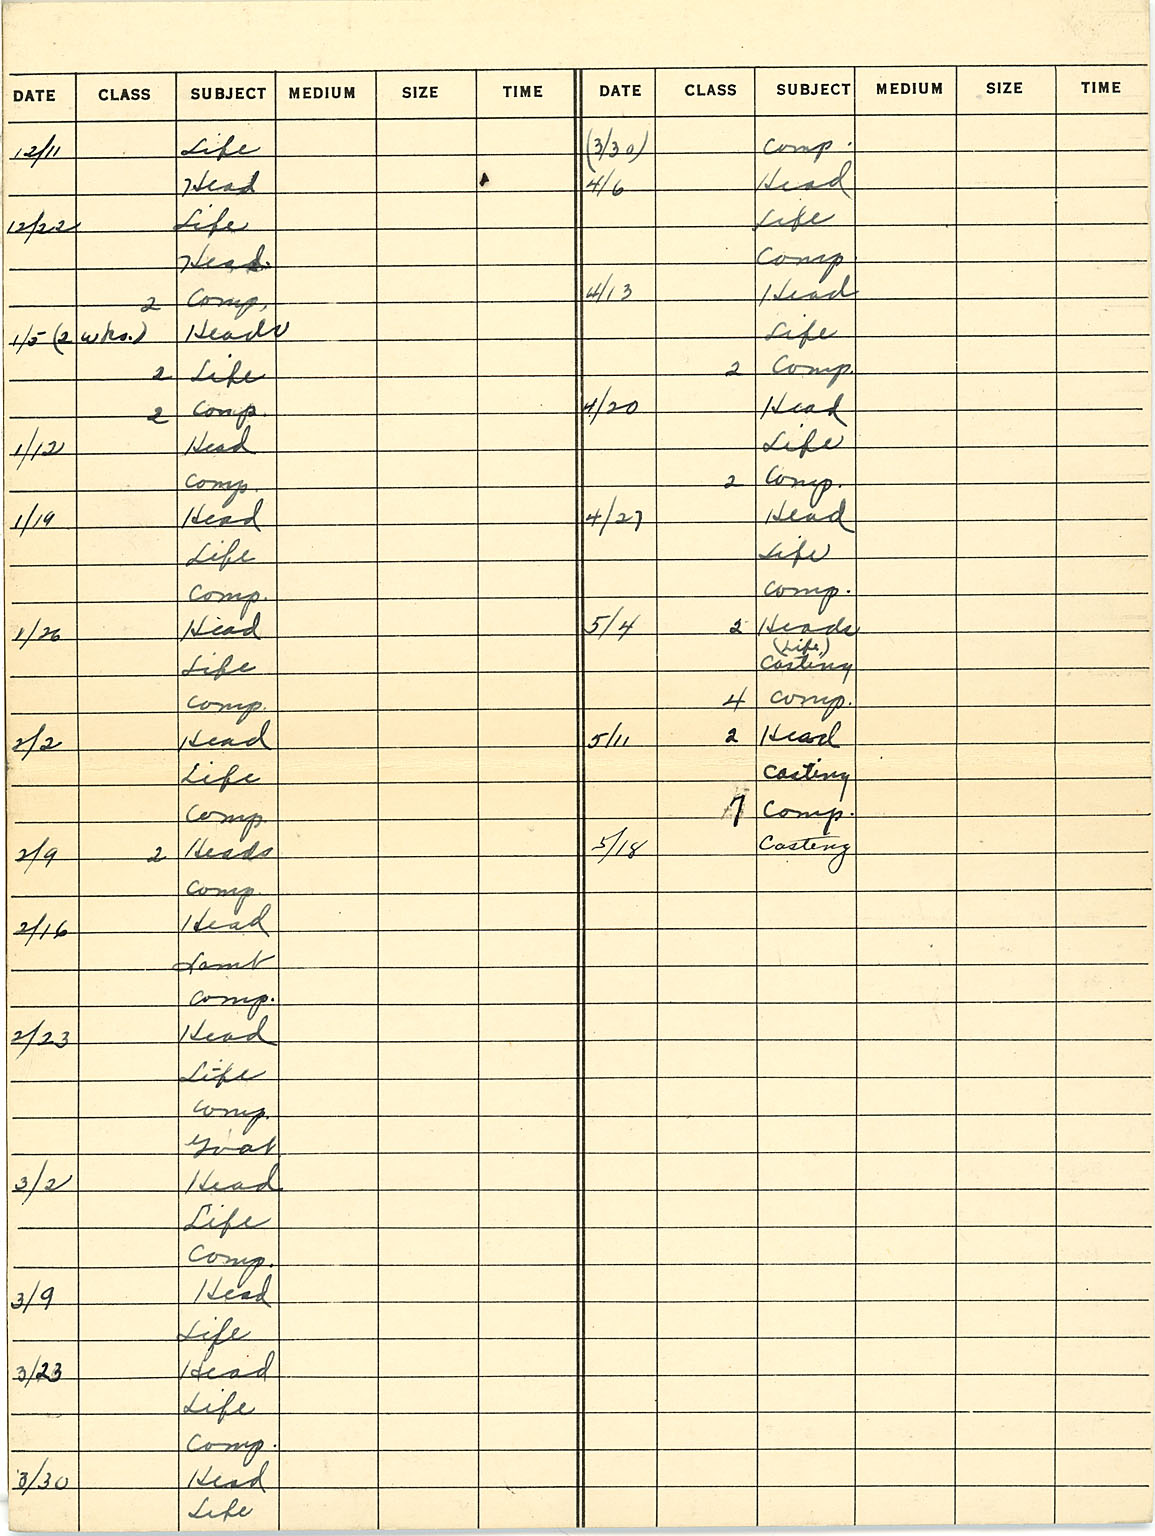 DATE CLASS SUBJECT MEDIUM SIZE TIME
12/11 Life
Head
12/22 Life
Head.
2 Comp.
1/5 (2 wks.) Heads
2 Life
2 Comp.
1/12 Head
Comp.
1/19 Head
Life
Comp.
1/26 Head
Life
Comp.
2/2 Head
Life
Comp.
2/9 2 Heads
Comp.
2/16 Head
Lamb
Comp.
2/23 Head
Life
Comp.
Goat
3/2 Head
Life
Comp.
3/9 Head
Life
3/23 Head
Life
Comp.
3/30 Head
Life
DATE CLASS SUBJECT MEDIUM SIZE TIME
(3/30) Comp.
4/6 Head
Life
Comp.
4/13 Head
Life
2 Comp.
4/20 Head
Life
2 Comp.
4/27 Head
Life
Comp.
5/4 2 Heads
(Life)
Casting
4 Comp.
5/11 2 Head
Casting
7 Comp.
5/18 Casting